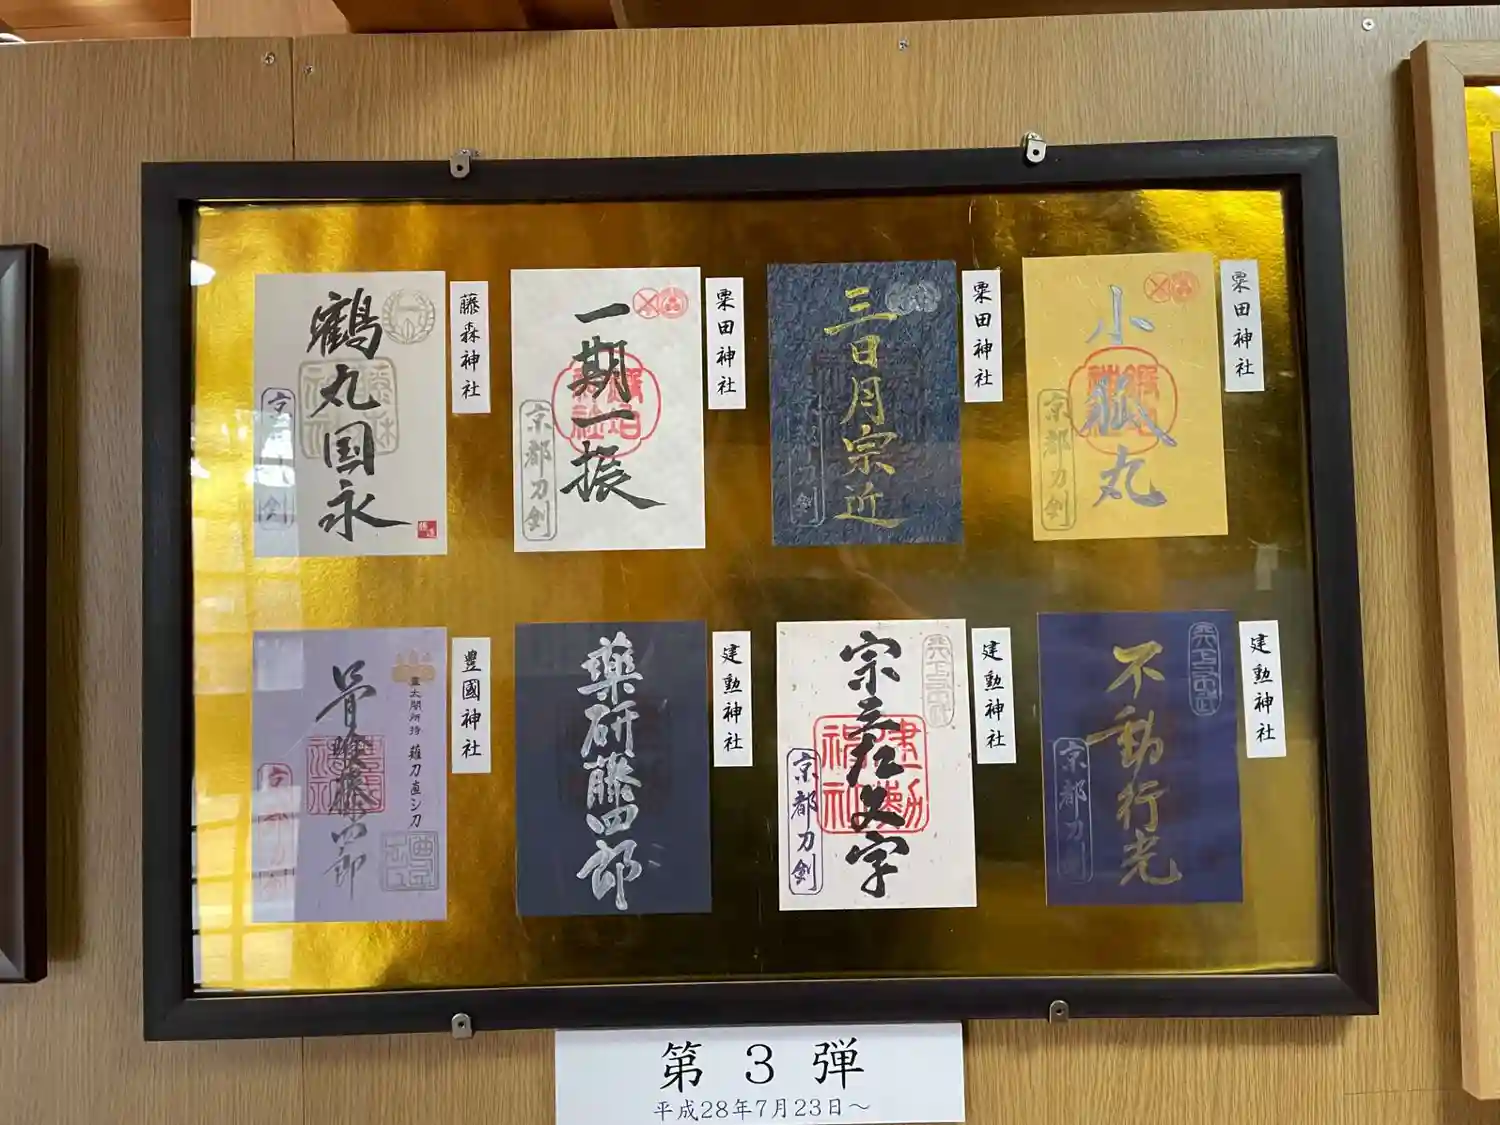 鶴丸国永
京都刀剣
藤森神社
一期一振
京都刀剣
粟田神社
三日月宗近
京都刀剣
粟田神社
小狐丸
京都刀剣
粟田神社
骨喰藤四郎
豊太閤所持
薙刀直シ刀
豊國神社
薬研藤四郎
建勲神社
宗三左文字
京都刀剣
建勲神社
不動行光
京都刀剣
建勲神社
第3弾
平成28年7月23日～